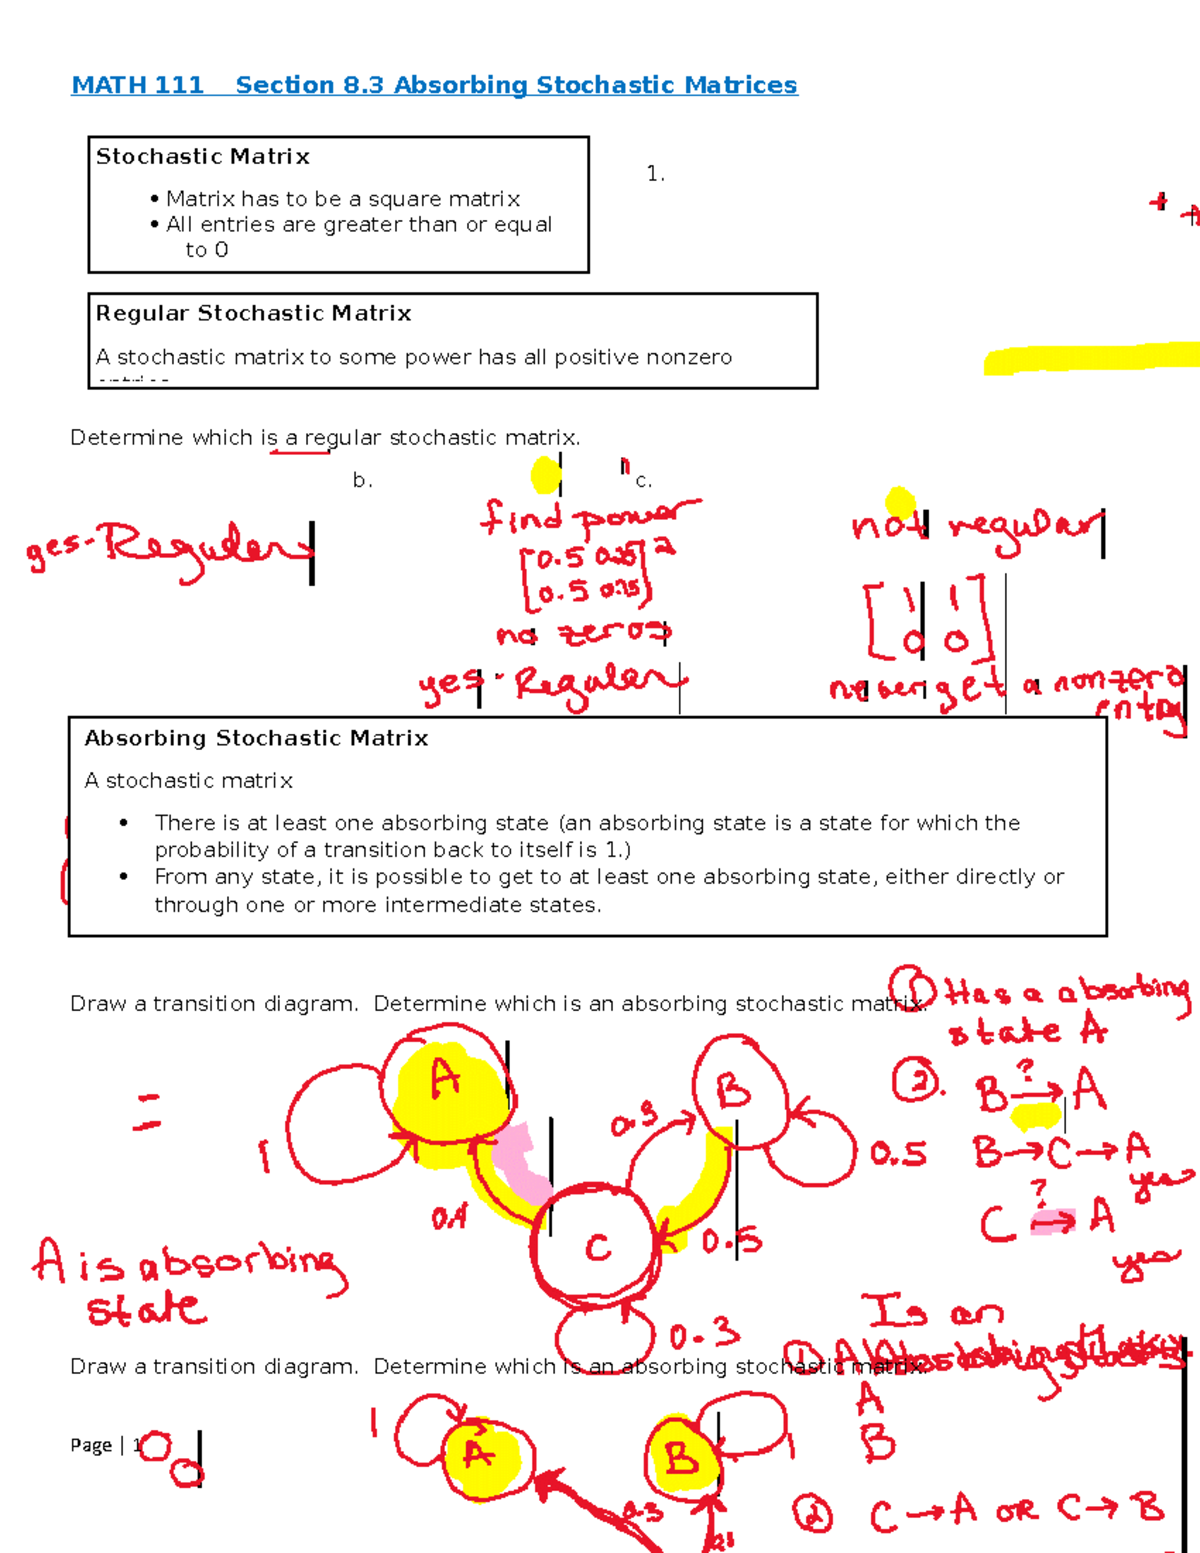 MATH 111 Section 8.3 Absorbing Stochastic Matrices
Stochastic Matrix
• Matrix has to be a square matrix
• All entries are greater than or equal
to 0
1.
+ +
Regular Stochastic Matrix
A stochastic matrix to some power has all positive nonzero
Determine which is a regular stochastic matrix.
b.
c.
yes-Regular
find power
[0.5 0.25
0.5 0.75]²
no zeros
yes-Regular
not regular
[1 1
0 0]
never get a nonzero
entry
Absorbing Stochastic Matrix
A stochastic matrix
• There is at least one absorbing state (an absorbing state is a state for which the
probability of a transition back to itself is 1.)
• From any state, it is possible to get to at least one absorbing state, either directly or
through one or more intermediate states.
Draw a transition diagram. Determine which is an absorbing stochastic matrix.
① Has a absorbing
state A
=
A
B
1
0.3
0.5
0.4
C
0.5
0.3
②. B →? A
B→C→A
yes
C →? A
yes
A is absorbing
state
Is an
Draw a transition diagram. Determine which is an absorbing stochastic matrix.
①
A
B
1
A
B
1
0.3
② C→A OR C→B
Page | 1